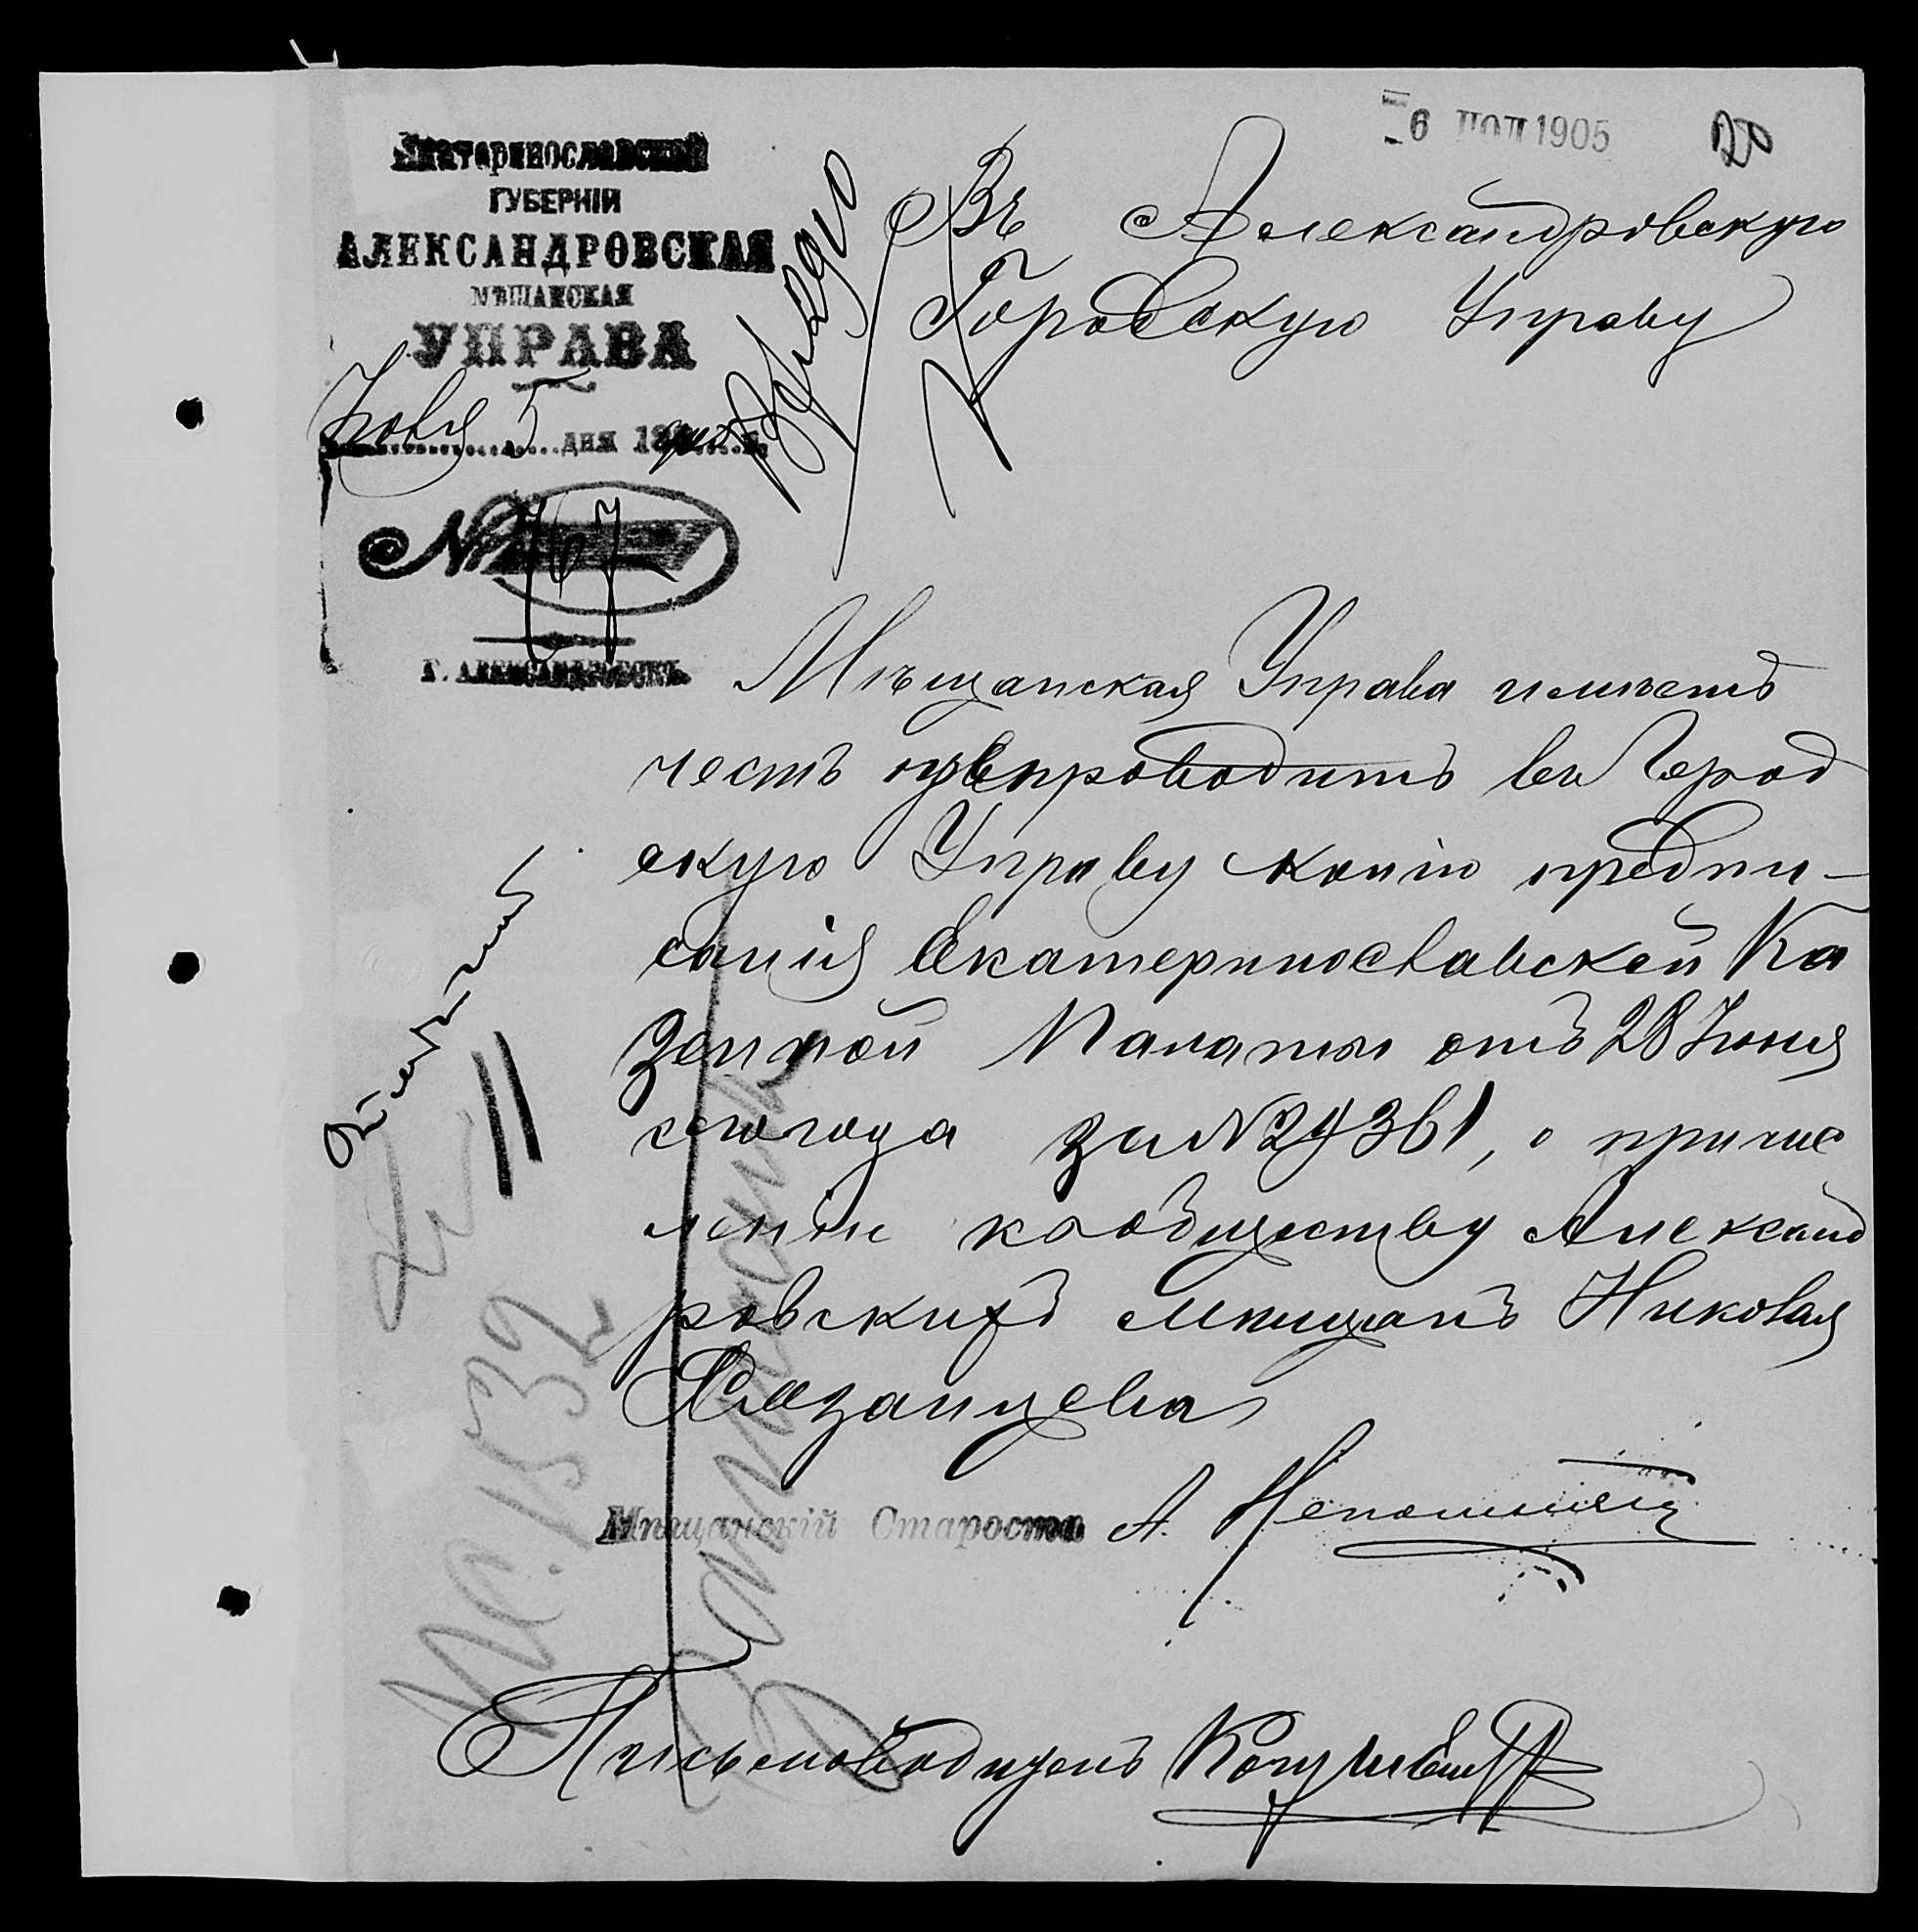 6 ІЮЛ 1905
20
Екатеринославской
ГУБЕРНІИ
АЛЕКСАНДРОВСКАЯ
МѢЩАНСКАЯ
УПРАВА
Іюля 5 дня 190
№ 767
Г. АЛЕКСАНДРОВСКЪ
Въ Александровскую
Городскую Управу
Мѣщанская Управа имѣетъ
честь препроводить въ Город
скую Управу копію предпи-
санія Екатеринославской Ка
зенной Палаты отъ 28 Іюня
сего года за № 24361, о причис
леніи къ обществу Александ
ровскихъ мѣщанъ Николая
Казанцева
Мѣщанскій Староста А.
Письмоводитель